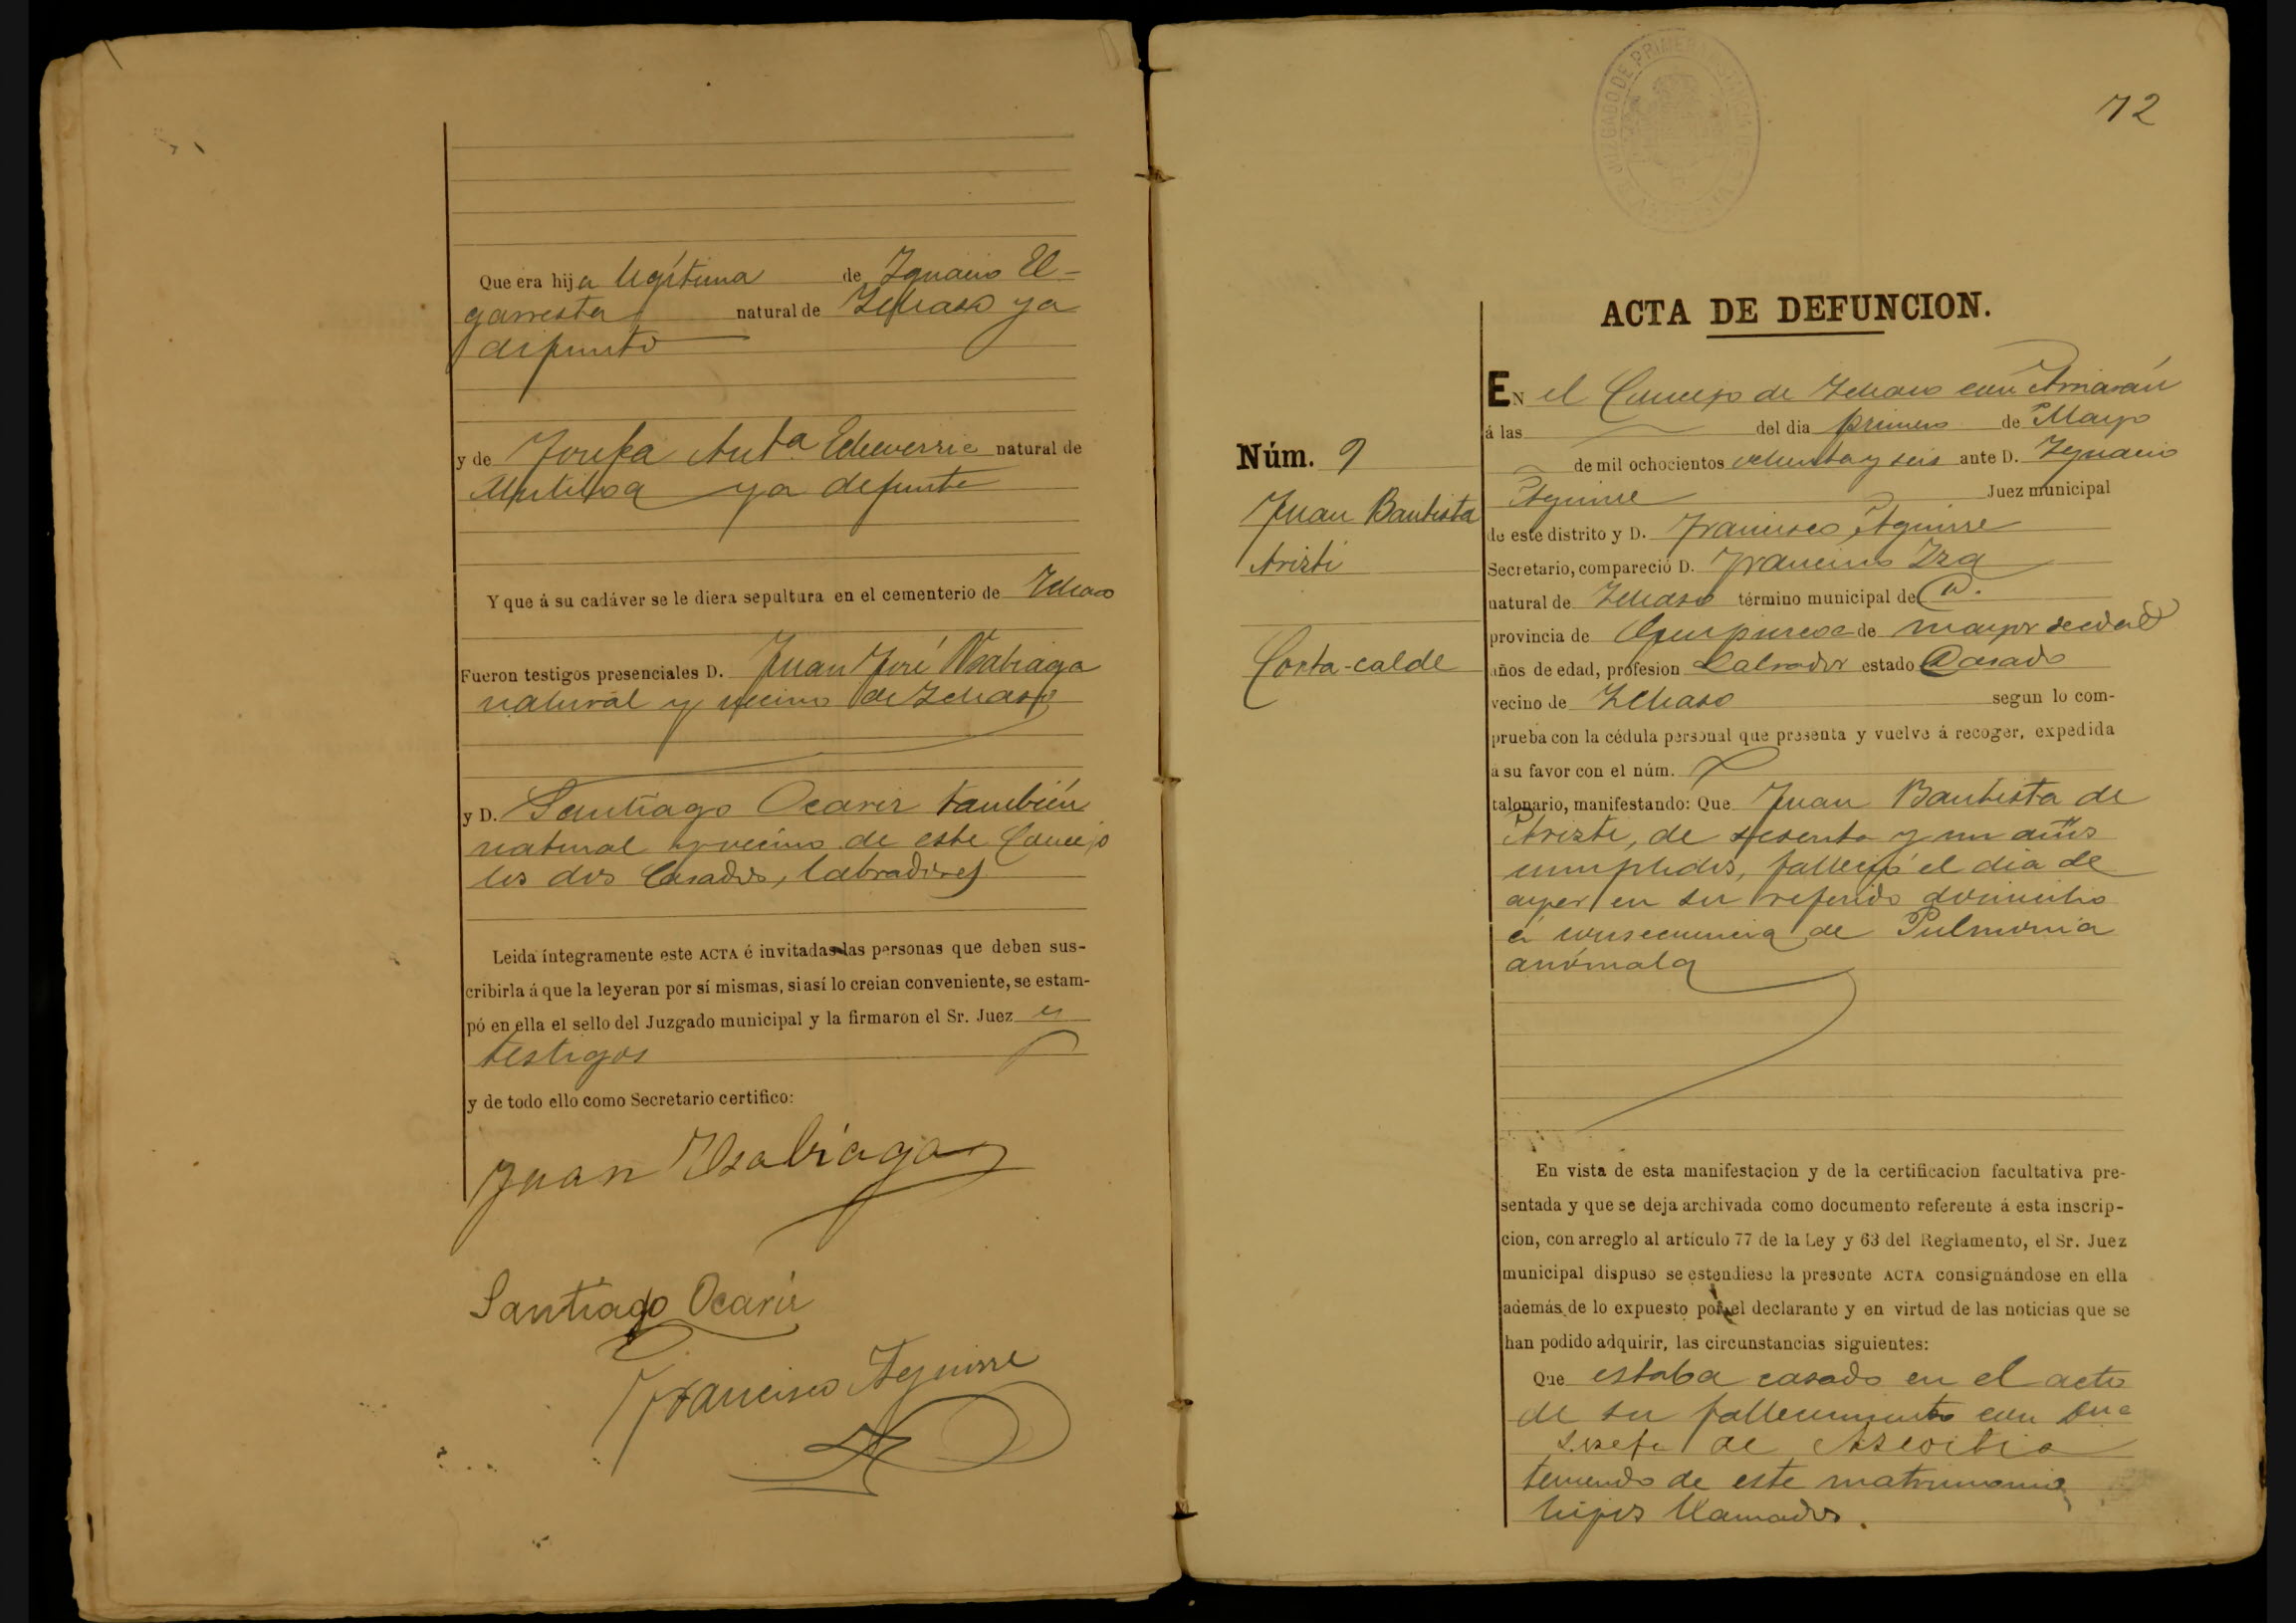 Que era hija legítima de Ignacio El-
garresta natural de Ichaso ya
difunto
y de Josefa Antª Echeverria natural de
Mutiloa ya difunta
Y que á su cadáver se le diera sepultura en el cementerio de Ichaso
Fueron testigos presenciales D. Juan José Usabiaga
natural y vecino de Ichaso
y D. Santiago Ocariz también
natural y vecino de este Concejo
los dos Casados, labradores
Leida íntegramente este ACTA é invitadas las personas que deben sus-
cribirla á que la leyeran por sí mismas, si así lo creian conveniente, se estam-
pó en ella el sello del Juzgado municipal y la firmaron el Sr. Juez y
testigos
y de todo ello como Secretario certifico:
Juan Usabiaga
Santiago Ocariz
Francisco Aguirre
72
JUZGADO DE PRIMERA INSTANCIA
ACTA DE DEFUNCION.
EN el Concejo de Ichaso con Arriarán
á las del dia primero de Mayo
de mil ochocientos ochenta y seis ante D. Ignacio
Aguirre Juez municipal
de este distrito y D. Francisco Aguirre
Secretario, compareció D. Francisco Iza
natural de Ichaso término municipal de id.
provincia de Guipuzcoa de mayor de edad
años de edad, profesion Labrador estado Casado
vecino de Ichaso segun lo com-
prueba con la cédula personal que presenta y vuelve á recoger, expedida
á su favor con el núm.
talonario, manifestando: Que Juan Bautista de
Arizti, de sesenta y un años
cumplidos, falleció el dia de
ayer en su referido domicilio
á consecuencia de Pulmonia
anómala
En vista de esta manifestacion y de la certificacion facultativa pre-
sentada y que se deja archivada como documento referente á esta inscrip-
cion, con arreglo al artículo 77 de la Ley y 63 del Reglamento, el Sr. Juez
municipal dispuso se estendiese la presente ACTA consignándose en ella
además de lo expuesto por el declarante y en virtud de las noticias que se
han podido adquirir, las circunstancias siguientes:
Que estaba casado en el acto
de su fallecimiento con
Josefa de Azcoitia
teniendo de este matrimonio
hijos llamados.
Núm. 9
Juan Bautista
Arizti
Corta-calde